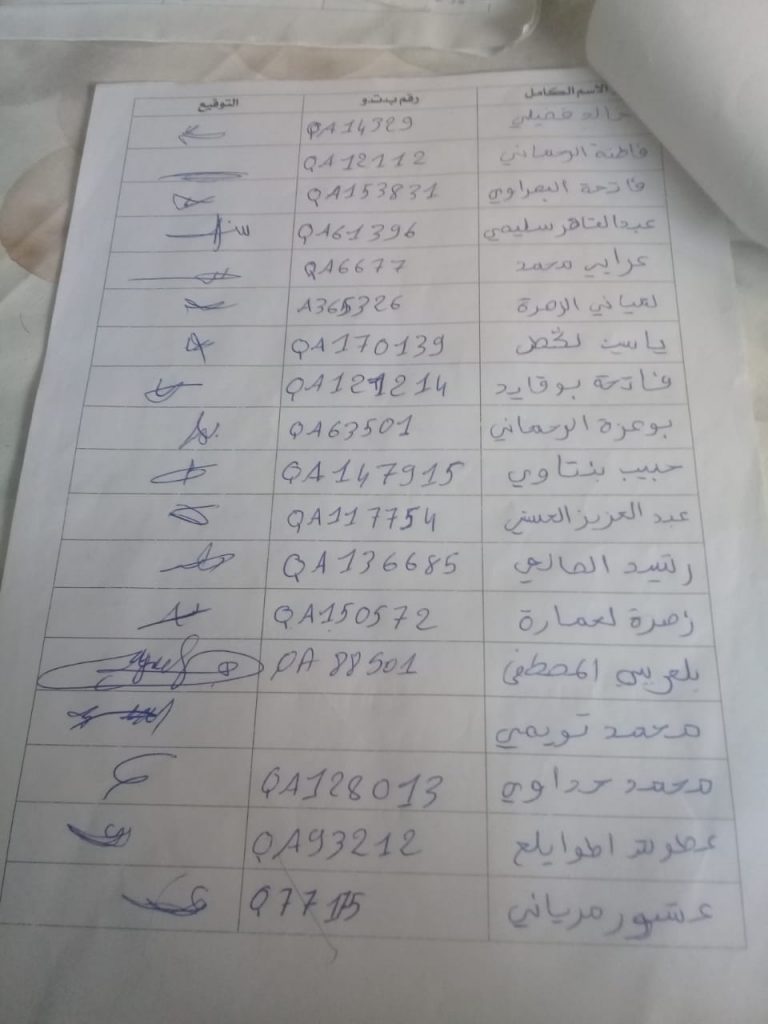 الاسم الكامل رقم ب.ت.و التوقيع
خالد فضيلي QA14329
فاطنة الرحماني QA12112
فاتحة البعراوي QA153831
عبد القاهر سليمي QA61396
عرابي محمد QA6677
لعياني الزهرة A365326
ياسين لخص QA170139
فاتحة بوقايد QA121214
بوعزة الرحماني QA63501
حبيب بنتاوي QA147915
عبد العزيز الحسني QA117754
رشيد الصالحي QA136685
زهرة لعمارة QA150572
بلعريبي المصطفى QA 88501
محمد تويمي
محمد حداوي QA128013
اطوايلع QA93212
عشور مرياني Q77175